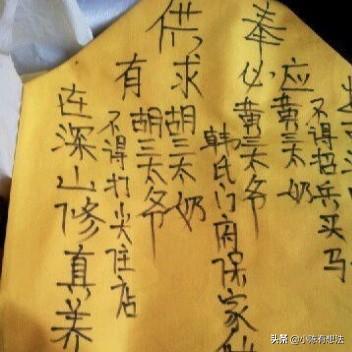 供奉
有求必应
在深山修真养
不得打尖住店
胡三太爷
胡三太奶
韩氏门府保家
黄三太爷
黄三太奶
不得招兵买马
头条 @小陈有想法